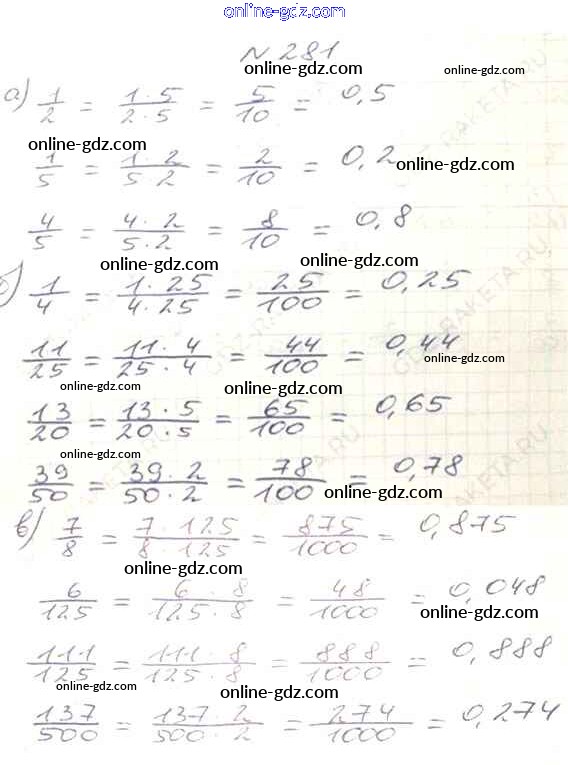 online-gdz.com
N 281
online-gdz.com online-gdz.com
а) 1/2 = 1·5/2·5 = 5/10 = 0,5
online-gdz.com
1/5 = 1·2/5·2 = 2/10 = 0,2
online-gdz.com
4/5 = 4·2/5·2 = 8/10 = 0,8
online-gdz.com
б) 1/4 = 1·25/4·25 = 25/100 = 0,25
online-gdz.com
11/25 = 11·4/25·4 = 44/100 = 0,44
online-gdz.com
online-gdz.com online-gdz.com
13/20 = 13·5/20·5 = 65/100 = 0,65
online-gdz.com
39/50 = 39·2/50·2 = 78/100 = 0,78
online-gdz.com
в) 7/8 = 7·125/8·125 = 875/1000 = 0,875
online-gdz.com
6/125 = 6·8/125·8 = 48/1000 = 0,048
online-gdz.com
111/125 = 111·8/125·8 = 888/1000 = 0,888
online-gdz.com online-gdz.com
137/500 = 137·2/500·2 = 274/1000 = 0,274